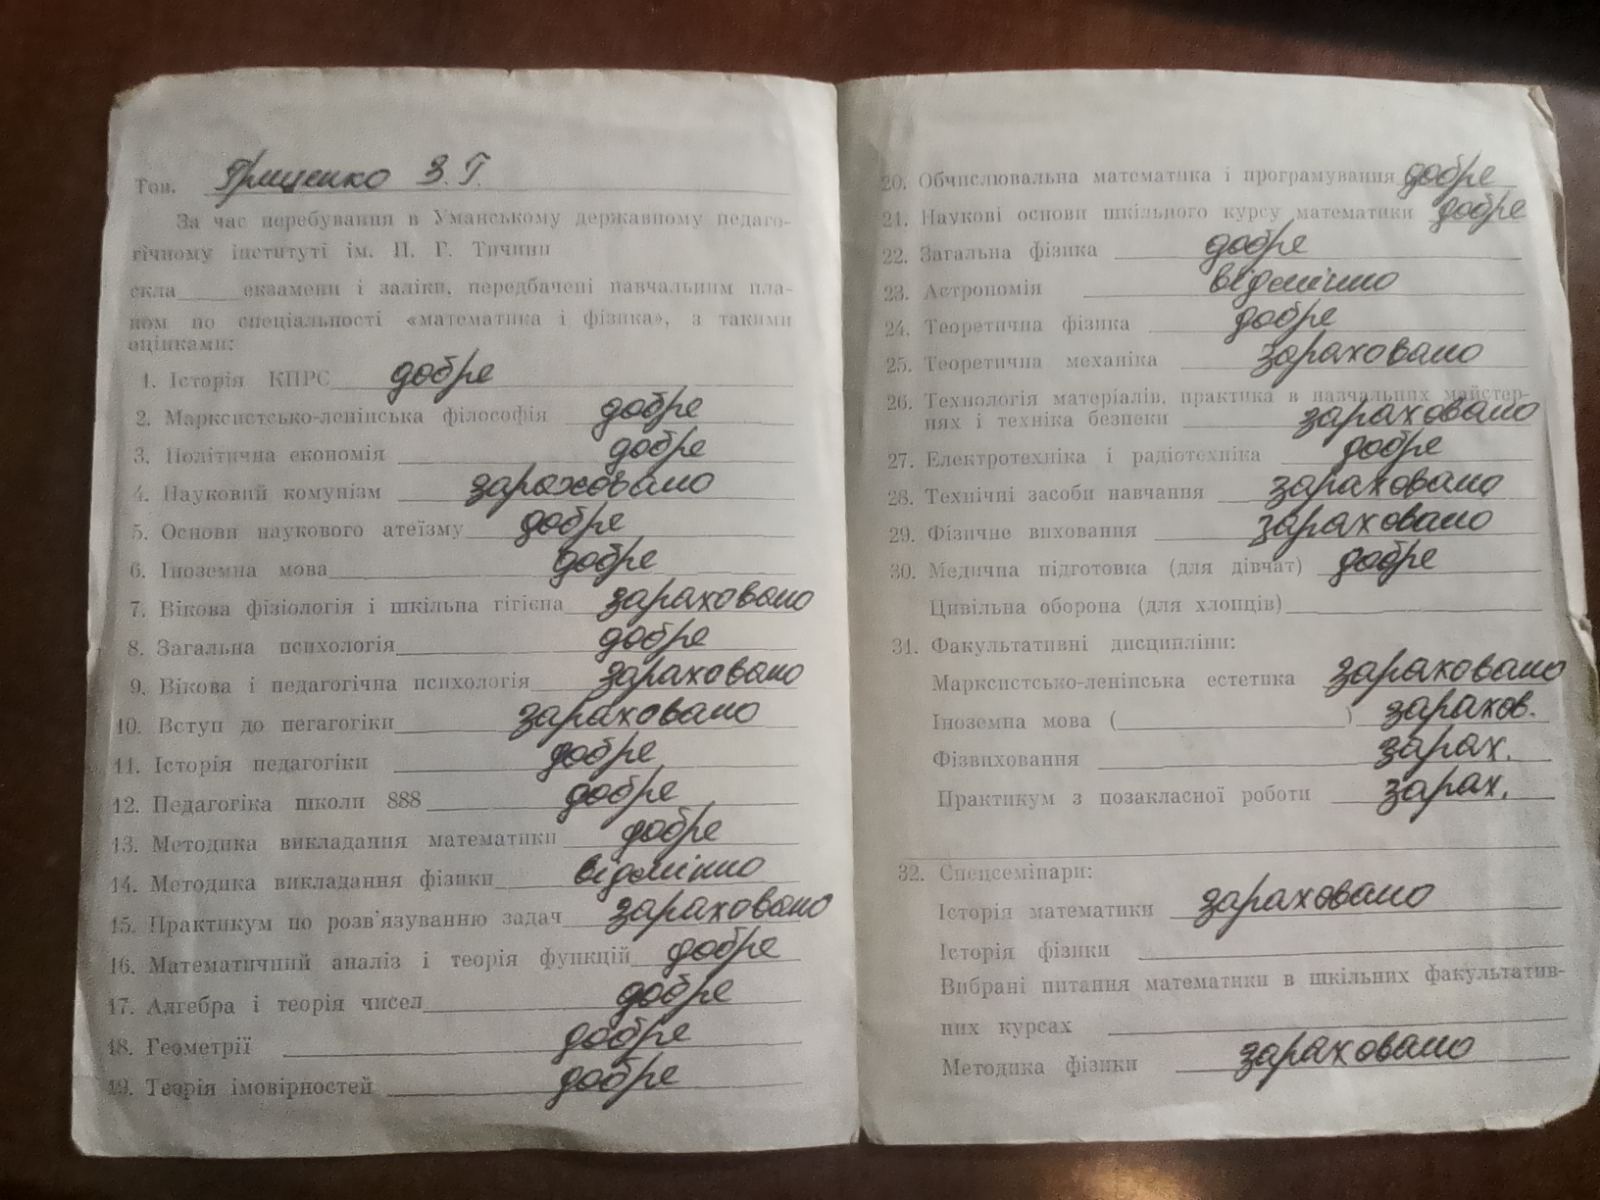 Тов. Гриценко З. Г.
За час перебування в Уманському державному педаго-
гічному інституті ім. П. Г. Тичини
скла____ екзамени і заліки, передбачені навчальним пла-
ном по спеціальності «математика і фізика», з такими
оцінками:
1. Історія КПРС добре
2. Марксистсько-ленінська філософія добре
3. Політична економія добре
4. Науковий комунізм зараховано
5. Основи наукового атеїзму добре
6. Іноземна мова добре
7. Вікова фізіологія і шкільна гігієна зараховано
8. Загальна психологія добре
9. Вікова і педагогічна психологія зараховано
10. Вступ до пегагогіки зараховано
11. Історія педагогіки добре
12. Педагогіка школи 888 добре
13. Методика викладання математики добре
14. Методика викладання фізики відмінно
15. Практикум по розв'язуванню задач зараховано
16. Математичний аналіз і теорія функцій добре
17. Алгебра і теорія чисел добре
18. Геометрії добре
19. Теорія імовірностей добре
20. Обчислювальна математика і програмування добре
21. Наукові основи шкільного курсу математики добре
22. Загальна фізика добре
23. Астрономія відмінно
24. Теоретична фізика добре
25. Теоретична механіка зараховано
26. Технологія матеріалів, практика в навчальних майстер-
нях і техніка безпеки зараховано
27. Електротехніка і радіотехніка добре
28. Технічні засоби навчання зараховано
29. Фізичне виховання зараховано
30. Медична підготовка (для дівчат) добре
Цивільна оборона (для хлопців)
31. Факультативні дисципліни:
Марксистсько-ленінська естетика зараховано
Іноземна мова (____) зарахов.
Фізвиховання зарах.
Практикум з позакласної роботи зарах.
32. Спецсемінари:
Історія математики зараховано
Історія фізики
Вибрані питання математики в шкільних факультатив-
них курсах
Методика фізики зараховано